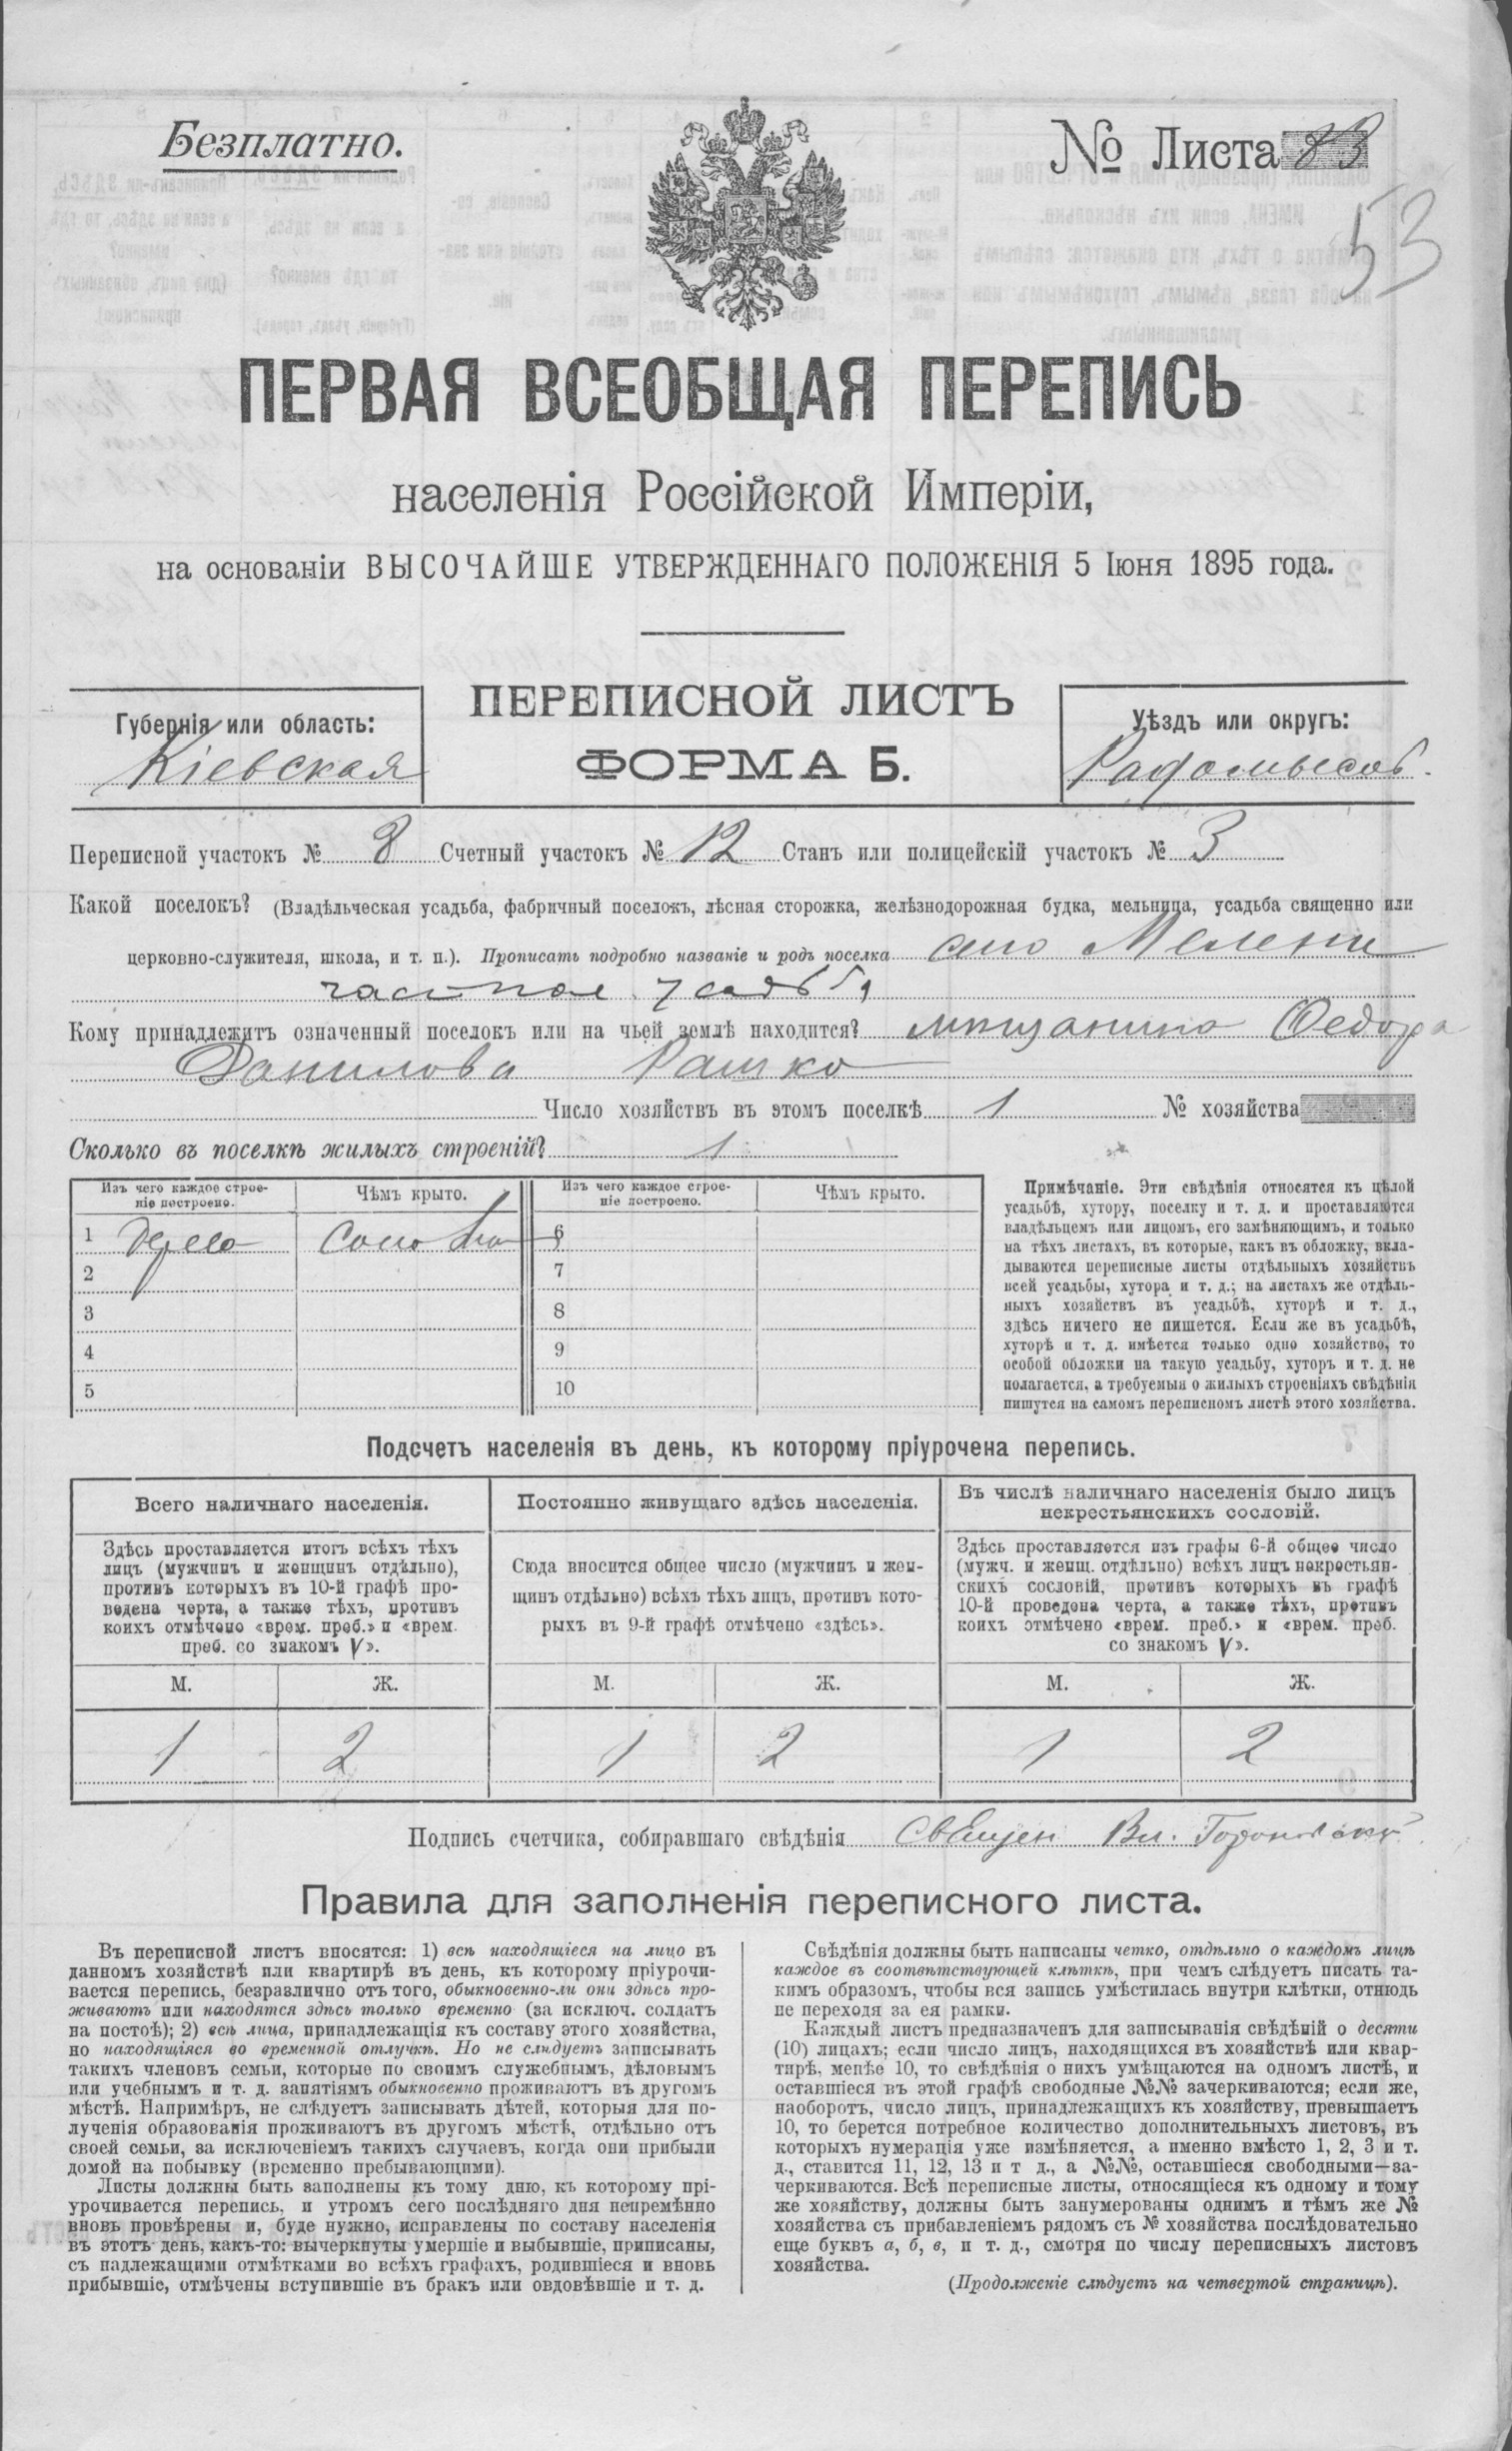 Безплатно.
№ Листа 83
53
ПЕРВАЯ ВСЕОБЩАЯ ПЕРЕПИСЬ
населенія Россійской Имперіи,
на основаніи ВЫСОЧАЙШЕ УТВЕРЖДЕННАГО ПОЛОЖЕНІЯ 5 Іюня 1895 года.
Губернія или область:
Кіевская
ПЕРЕПИСНОЙ ЛИСТЪ
ФОРМА Б.
Уѣздъ или округъ:
Радомысл.
Переписной участокъ № 8 Счетный участокъ № 12 Станъ или полицейскій участокъ № 3
Какой поселокъ? (Владѣльческая усадьба, фабричный поселокъ, лѣсная сторожка, желѣзнодорожная будка, мельница, усадьба священно или
церковно-служителя, школа, и т. п.). Прописать подробно названіе и родъ поселка село Мелени
частная усадьба
Кому принадлежитъ означенный поселокъ или на чьей землѣ находится? мѣщанина Федора
Данилова Рашко
Число хозяйствъ въ этомъ поселкѣ 1 № хозяйства
Сколько въ поселкѣ жилыхъ строеній? 1
Изъ чего каждое строе-
ніе построено.
Чѣмъ крыто.
Изъ чего каждое строе-
ніе построено.
Чѣмъ крыто.
1 Дерево Солома 6
2 7
3 8
4 9
5 10
Примѣчаніе. Эти свѣдѣнія относятся къ цѣлой
усадьбѣ, хутору, поселку и т. д. и проставляются
владѣльцемъ или лицомъ, его замѣняющимъ, и только
на тѣхъ листахъ, въ которые, какъ въ обложку, вкла-
дываются переписные листы отдѣльныхъ хозяйствъ
всей усадьбы, хутора и т. д.; на листахъ же отдѣль-
ныхъ хозяйствъ въ усадьбѣ, хуторѣ и т. д.,
здѣсь ничего не пишется. Если же въ усадьбѣ,
хуторѣ и т. д. имѣется только одно хозяйство, то
особой обложки на такую усадьбу, хуторъ и т. д. не
полагается, а требуемыя о жилыхъ строеніяхъ свѣдѣнія
пишутся на самомъ переписномъ листѣ этого хозяйства.
Подсчетъ населенія въ день, къ которому пріурочена перепись.
Всего наличнаго населенія.
Здѣсь проставляется итогъ всѣхъ тѣхъ
лицъ (мужчинъ и женщинъ отдѣльно),
противъ которыхъ въ 10-й графѣ про-
ведена черта, а также тѣхъ, противъ
коихъ отмѣчено «врем. преб.» и «врем.
преб. со знакомъ V».
Постоянно живущаго здѣсь населенія.
Сюда вносится общее число (мужчинъ и жен-
щинъ отдѣльно) всѣхъ тѣхъ лицъ, противъ кото-
рыхъ въ 9-й графѣ отмѣчено «здѣсь».
Въ числѣ наличнаго населенія было лицъ
некрестьянскихъ сословій.
Здѣсь проставляется изъ графы 6-й общее число
(мужч. и женщ. отдѣльно) всѣхъ лицъ некрестьян-
скихъ сословій, противъ которыхъ въ графѣ
10-й проведена черта, а также тѣхъ, противъ
коихъ отмѣчено «врем. преб.» и «врем. преб.
со знакомъ V».
М. Ж. М. Ж. М. Ж.
1 2 1 2 1 2
Подпись счетчика, собиравшаго свѣдѣнія Священ Вл.
Правила для заполненія переписного листа.
Въ переписной листъ вносятся: 1) всѣ находящіеся на лицо въ
данномъ хозяйствѣ или квартирѣ въ день, къ которому пріурочи-
вается перепись, безразлично отъ того, обыкновенно-ли они здѣсь про-
живаютъ или находятся здѣсь только временно (за исключ. солдатъ
на постоѣ); 2) всѣ лица, принадлежащія къ составу этого хозяйства,
но находящіяся во временной отлучкѣ. Но не слѣдуетъ записывать
такихъ членовъ семьи, которые по своимъ служебнымъ, дѣловымъ
или учебнымъ и т. д. занятіямъ обыкновенно проживаютъ въ другомъ
мѣстѣ. Напримѣръ, не слѣдуетъ записывать дѣтей, которыя для по-
лученія образованія проживаютъ въ другомъ мѣстѣ, отдѣльно отъ
своей семьи, за исключеніемъ такихъ случаевъ, когда они прибыли
домой на побывку (временно пребывающими).
Листы должны быть заполнены къ тому дню, къ которому прі-
урочивается перепись, и утромъ сего послѣдняго дня непремѣнно
вновь провѣрены и, буде нужно, исправлены по составу населенія
въ этотъ день, какъ-то: вычеркнуты умершіе и выбывшіе, приписаны,
съ надлежащими отмѣтками во всѣхъ графахъ, родившіеся и вновь
прибывшіе, отмѣчены вступившіе въ бракъ или овдовѣвшіе и т. д.
Свѣдѣнія должны быть написаны четко, отдѣльно о каждомъ лицѣ
каждое въ соотвѣтствующей клѣткѣ, при чемъ слѣдуетъ писать та-
кимъ образомъ, чтобы вся запись умѣстилась внутри клѣтки, отнюдь
не переходя за ея рамки.
Каждый листъ предназначенъ для записыванія свѣдѣній о десяти
(10) лицахъ; если число лицъ, находящихся въ хозяйствѣ или квар-
тирѣ, менѣе 10, то свѣдѣнія о нихъ умѣщаются на одномъ листѣ, и
оставшіеся въ этой графѣ свободные №№ зачеркиваются; если же,
наоборотъ, число лицъ, принадлежащихъ къ хозяйству, превышаетъ
10, то берется потребное количество дополнительныхъ листовъ, въ
которыхъ нумерація уже измѣняется, а именно вмѣсто 1, 2, 3 и т.
д., ставится 11, 12, 13 и т д., а №№, оставшіеся свободными—за-
черкиваются. Всѣ переписные листы, относящіеся къ одному и тому
же хозяйству, должны быть занумерованы однимъ и тѣмъ же №
хозяйства съ прибавленіемъ рядомъ съ № хозяйства послѣдовательно
еще буквъ а, б, в, и т. д., смотря по числу переписныхъ листовъ
хозяйства.
(Продолженіе слѣдуетъ на четвертой страницѣ).